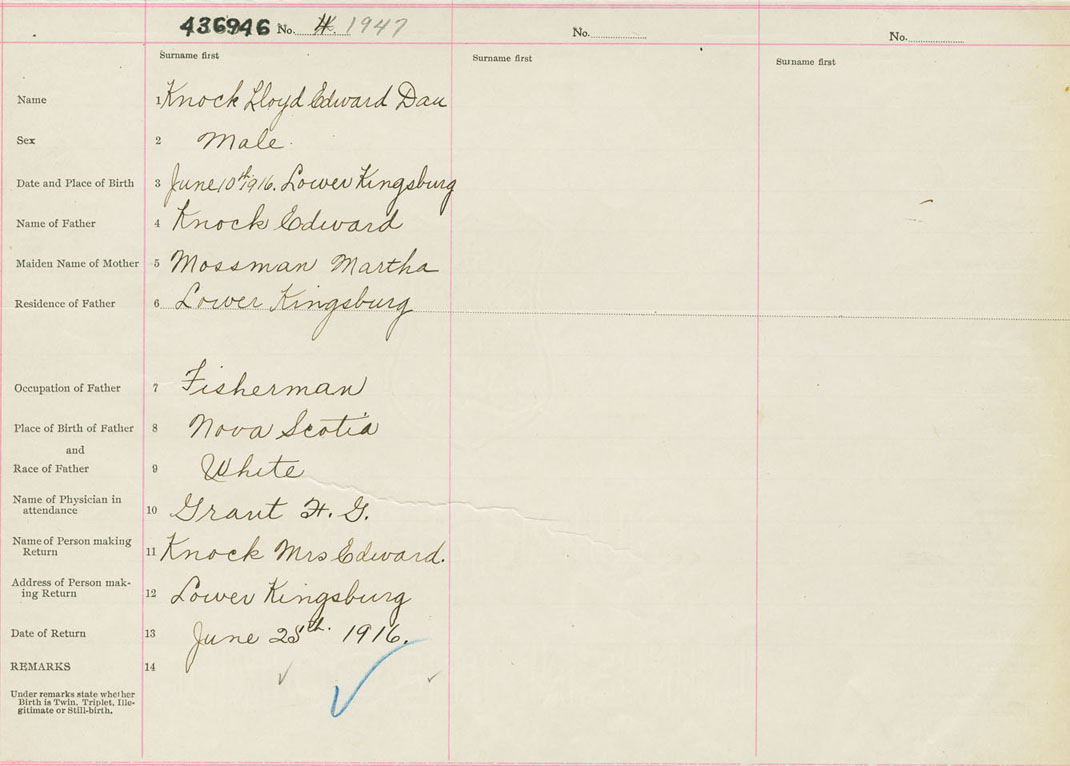 436946 No. 4. 1947 No. No.
Surname first Surname first Surname first
Name 1 Knock Lloyd Edward Dau
Sex 2 Male.
Date and Place of Birth 3 June 10th 1916. Lower Kingsburg
Name of Father 4 Knock Edward
Maiden Name of Mother 5 Mossman Martha
Residence of Father 6 Lower Kingsburg
Occupation of Father 7 Fisherman
Place of Birth of Father 8 Nova Scotia
and
Race of Father 9 White
Name of Physician in
attendance 10 Grant H. G.
Name of Person making
Return 11 Knock Mrs Edward.
Address of Person mak-
ing Return 12 Lower Kingsburg
Date of Return 13 June th. 1916.
REMARKS 14
Under remarks state whether
Birth is Twin, Triplet, Ille-
gitimate or Still-birth.